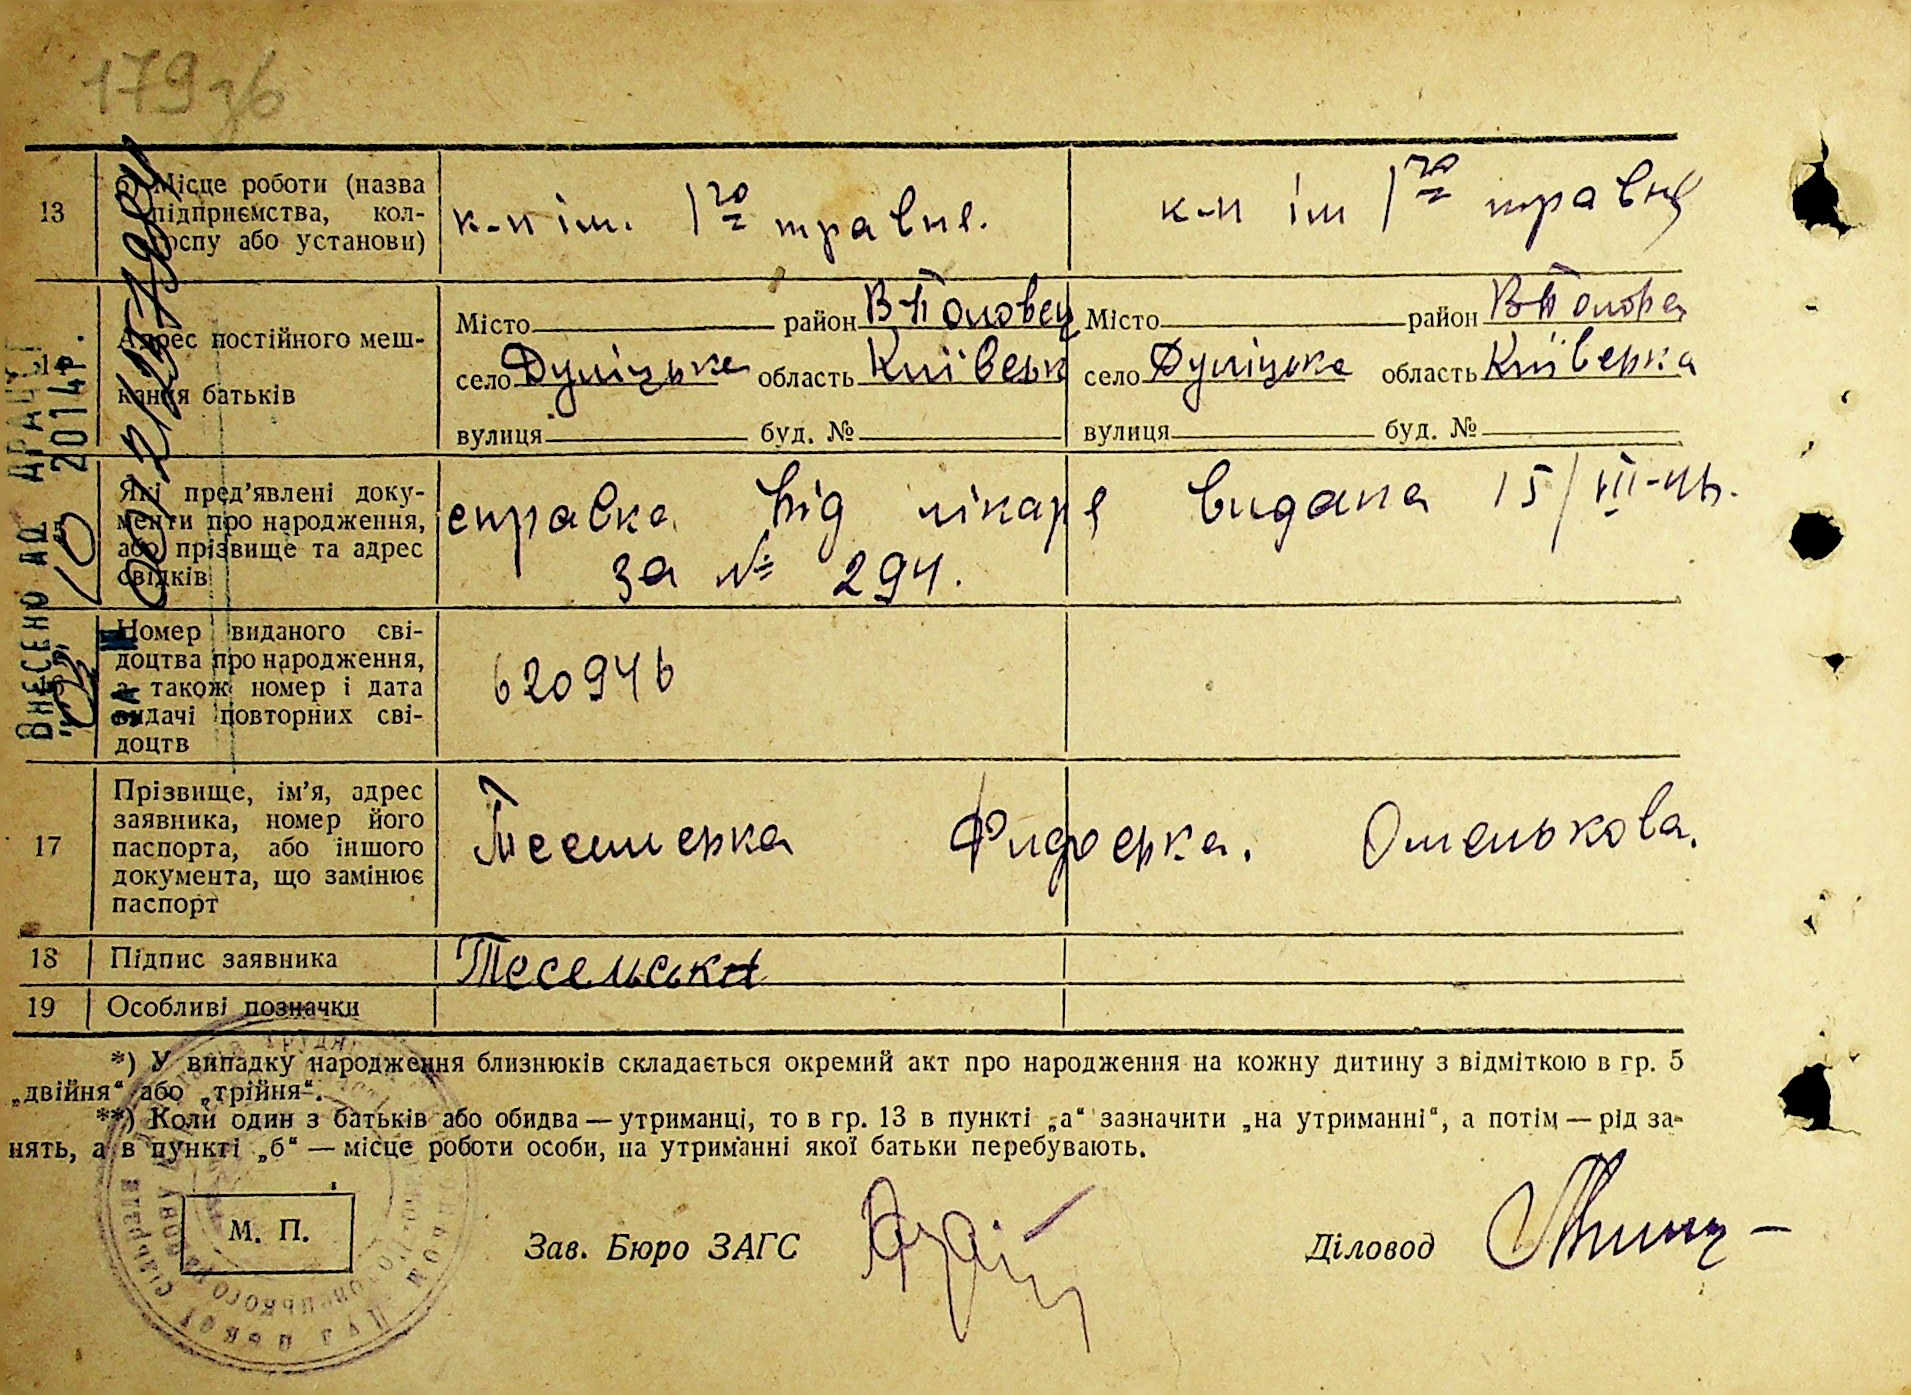 179зв
13
б) Місце роботи (назва
підприємства, кол-
госпу або установи)
к-п ім. 1го травня.
к-п ім 1го травня
14
Адрес постійного меш-
кання батьків
Місто район В-Половец
село Дуліцьке область Київськ
вулиця буд. №
Місто район В-Половец
село Дуліцьке область Київська
вулиця буд. №
Які пред'явлені доку-
менти про народження,
або прізвище та адрес
свідків
справка від лікаря видана 15/III-41р.
за № 294.
Номер виданого сві-
доцтва про народження,
а також номер і дата
видачі повторних сві-
доцтв
620946
17
Прізвище, ім'я, адрес
заявника, номер його
паспорта, або іншого
документа, що замінює
паспорт
Омелькова.
18
Підпис заявника
Тесельська
19
Особливі позначки
*) У випадку народження близнюків складається окремий акт про народження на кожну дитину з відміткою в гр. 5
„двійня“ або „трійня“.
**) Коли один з батьків або обидва — утриманці, то в гр. 13 в пункті „а“ зазначити „на утриманні“, а потім — рід за-
нять, а в пункті „б“ — місце роботи особи, на утриманні якої батьки перебувають.
М. П.
Зав. Бюро ЗАГС
Діловод
ВНЕСЕНО ДО ДРАЦС
10 2014р.
ЗА №